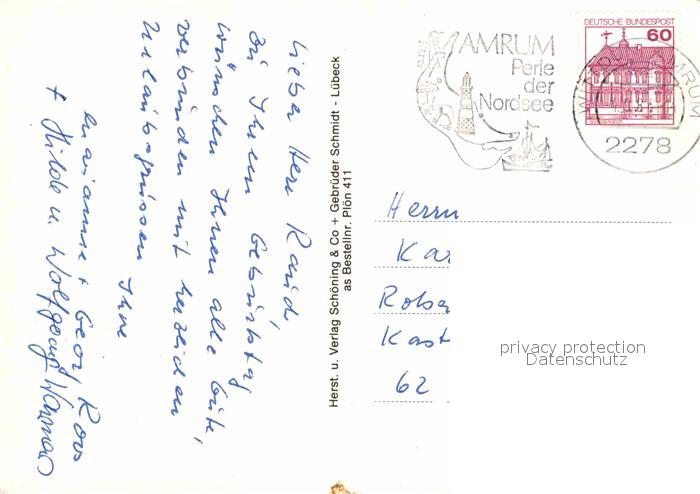 Lieber Herr Raid,
zu Ihrem Geburtstag
wünschen Ihnen alles Gute,
verbunden mit herzlichen
Urlaubsgrüssen Ihre
Marianne + Georg Roos
+ Hilde u. Wolfgang
Herst. u. Verlag Schöning & Co + Gebrüder Schmidt - Lübeck
as Bestellnr. Plön 411
AMRUM
Perle
der
Nordsee
DEUTSCHE BUNDESPOST
60
2278
Herrn
Kar
Rober
Kast
62
privacy protection
Datenschutz